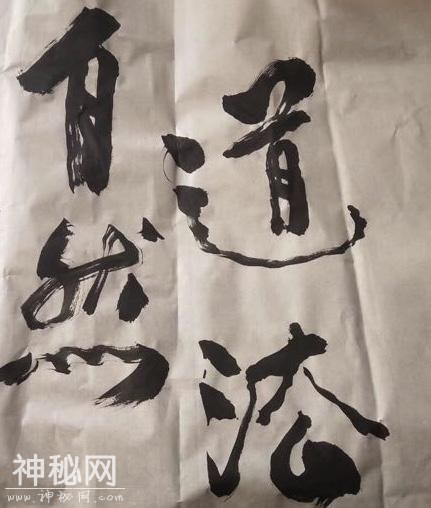 道法
自然
神秘网
www.神秘网.com